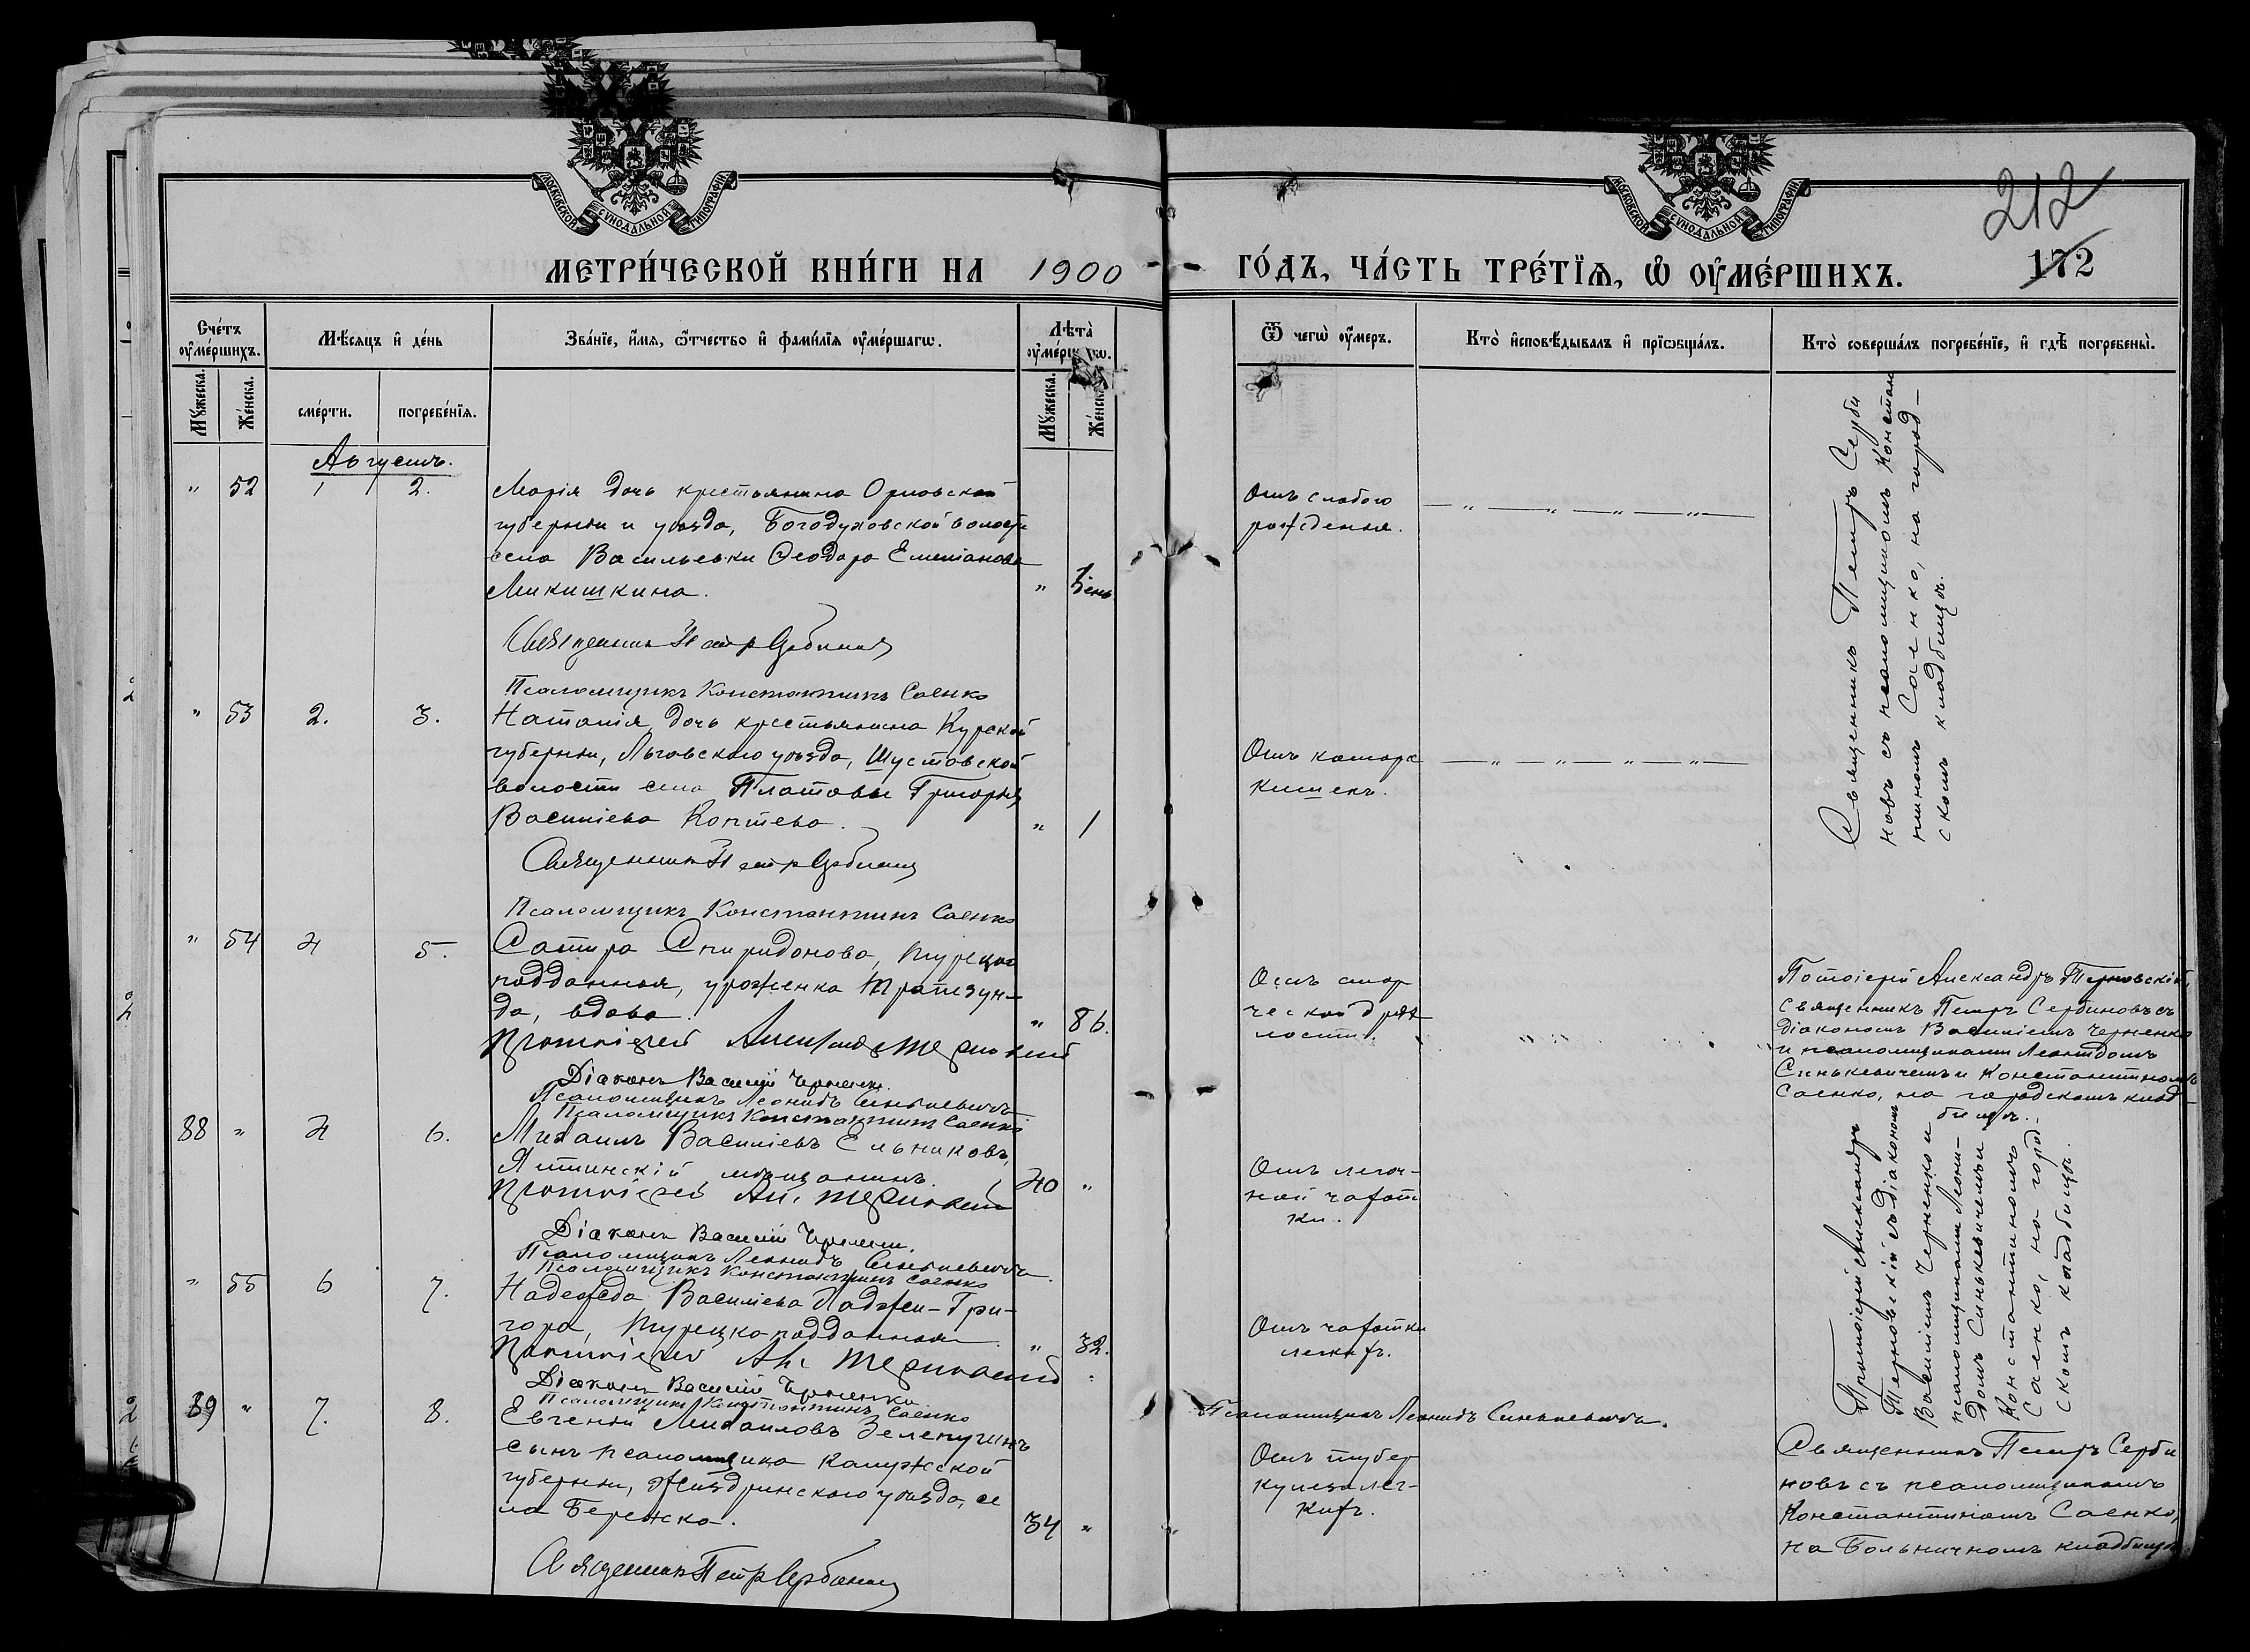 МОСКОВСКОЙ СѴНОДАЛЬНОЙ ТИПОГРАФІИ
МОСКОВСКОЙ СѴНОДАЛЬНОЙ ТИПОГРАФІИ
212
МЕТРИ́ЧЕСКОЙ КНИ́ГИ НА 1900
ГО́ДЪ, ЧА́СТЬ ТРЕ́ТЇѦ, Ѡ҆ ОУ҆МЕ́РШИХЪ.
172
Сче́тъ оу҆ме́ршихъ.
Мѣ́сѧцъ и҆ де́нь
Зва́нїе, и҆́мѧ, ѻ҆́тчество и҆ фами́лїѧ оу҆ме́ршагѡ.
Лѣта̀ оу҆ме́ршагѡ.
Ѿ чегѡ̀ оу҆́меръ.
Кто̀ и҆сповѣ́дывалъ и҆ прїѡбща́лъ.
Кто̀ соверша́лъ погребе́нїе, и҆ гдѣ̀ погребены̀.
Мꙋ́жеска.
Же́нска.
сме́рти.
погребе́нїѧ.
Мꙋ́жеска.
Же́нска.
Августъ.
" 52 1 2.
Марія дочь крестьянина Орловской
губерніи и уѣзда, Богодуховской волости
села Васильевки Ѳеодора Емеліанова
Микишкина. " 1 день
Священникъ Петръ Сербиновъ
Псаломщикъ Константинъ Саенко
Отъ слабого
рожденія.
Священникъ Петръ Серби
новъ съ псаломщикомъ Констан
тиномъ Саенко, на город-
скомъ кладбищѣ.
" 53 2. 3.
Наталія, дочь крестьянина Курской
губерніи, Льговскаго уѣзда, Шустовской
волости села Платавы Григорія
Василіева Коптева. " 1
Священникъ Петръ Сербиновъ
Псаломщикъ Константинъ Саенко
Отъ катара
кишекъ.
" 54 4 5.
Сатира Спиридонова, турецко
подданная, уроженка Трапезун-
да, вдова. " 86.
Протоіерей Александръ Терновскій
Діаконъ Василій Черненко.
Псаломщикъ Леонидъ Синькевичъ
Псаломщикъ Константинъ Саенко
Отъ стар
ческой дрях
лости.
Потоіерей Александръ Терновскій,
Священникъ Петръ Сербиновъ съ
діакономъ Василіемъ Черненко
и псаломщиками Леонидомъ
Синькевичемъ и Константиномъ
Саенко, на городскомъ клад-
бищѣ.
88 " 4 6.
Михаилъ Василіевъ Ельниковъ,
Ялтинскій мѣщанинъ. 40 "
Протоіерей Ал. Терновскій
Діаконъ Василій Черненко.
Псаломщикъ Леонидъ Синькевичъ.
Псаломщикъ Константинъ Саенко
Отъ легоч-
ной чахот
ки.
Протоіерей Александръ
Терновскій съ діакономъ
Василіемъ Черненко и
псаломщиками Леони-
домъ Синькевичемъ и
Константиномъ
Саенко, на город-
скомъ кладбищѣ.
" 55 6 7.
Надежда Василіева Хаджи-Гри-
гора, турецко подданная " 32.
Протоіерей Ал. Терновскій
Діаконъ Василій Черненко
Псаломщикъ Константинъ Саенко
Псаломщикъ Леонидъ Синькевичъ.
Отъ чахотки
легкихъ.
89 " 7. 8.
Евгеній Михаиловъ Зелепугинъ
сынъ псаломщика Калужской
губерніи, Жиздринскаго уѣзда, се
ла Бережка. 34 "
Священникъ Петръ Сербиновъ
Отъ тубер
кулеза лег-
кихъ.
Священникъ Петръ Серби
новъ съ псаломщикомъ
Константиномъ Саенко,
на Больничномъ кладбищѣ